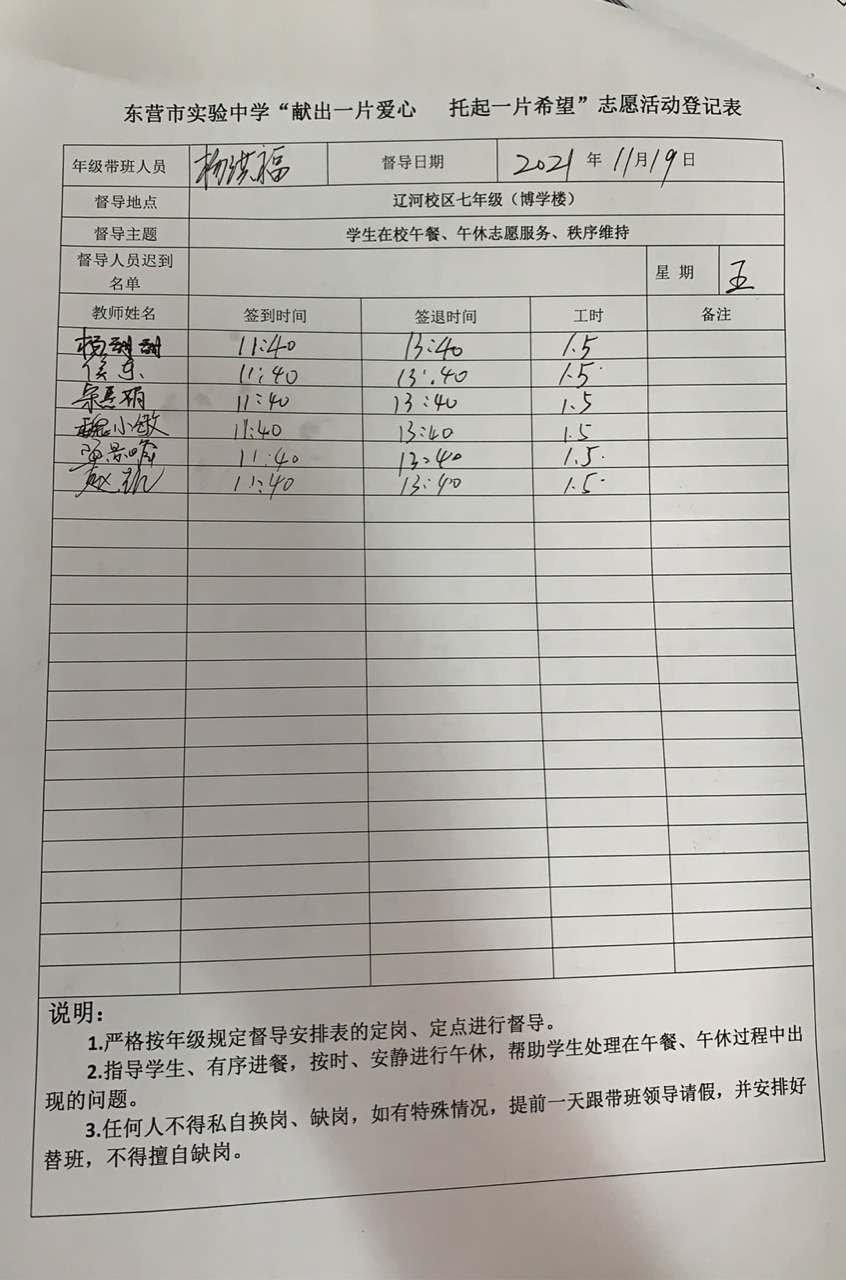 东营市实验中学“献出一片爱心 托起一片希望”志愿活动登记表
年级带班人员 杨洪福 督导日期 2021 年 11月19日
督导地点 辽河校区七年级（博学楼）
督导主题 学生在校午餐、午休志愿服务、秩序维持
督导人员迟到名单 星 期 五
教师姓名 签到时间 签退时间 工时 备注
杨甜甜 11:40 13:40 1.5
侯东 11:40 13:40 1.5
11:40 13:40 1.5
魏小敏 11:40 13:40 1.5
11:40 13:40 1.5
赵凯 11:40 13:40 1.5
说明：
1.严格按年级规定督导安排表的定岗、定点进行督导。
2.指导学生、有序进餐，按时、安静进行午休，帮助学生处理在午餐、午休过程中出
现的问题。
3.任何人不得私自换岗、缺岗，如有特殊情况，提前一天跟带班领导请假，并安排好
替班，不得擅自缺岗。